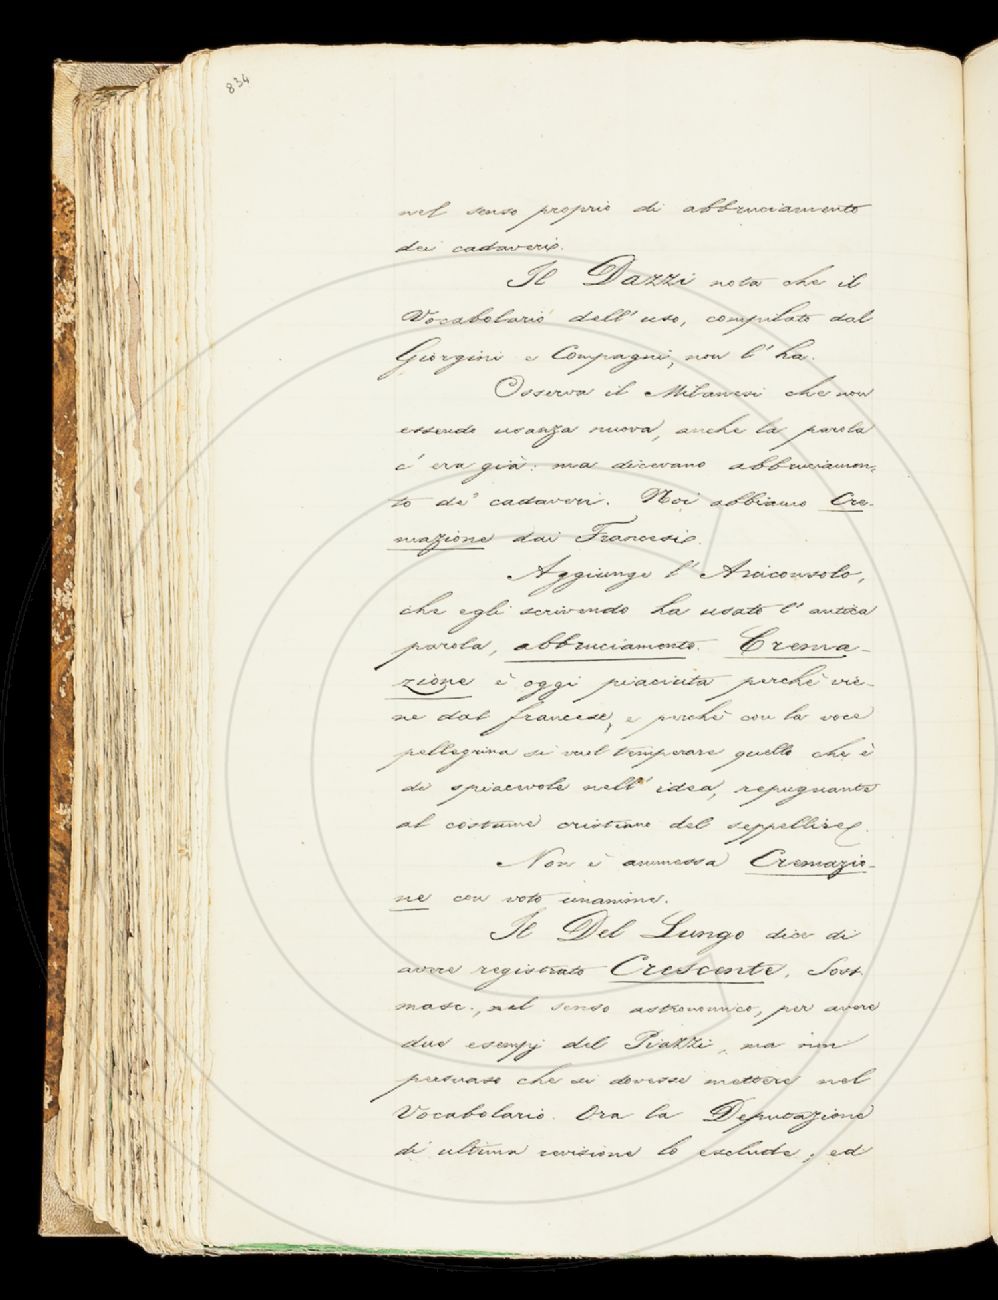 834
nel senso proprio di abbruciamento
dei cadaveri.
Il Dazzi nota che il
Vocabolario dell' uso, compilato dal
Giorgini e Compagni, non l' ha.
Osserva il Milanesi che non
essendo usanza nuova, anche la parola
c' era già: ma dicevano abbruciamen-
to de' cadaveri. Noi abbiamo Cre-
mazione dai Francesi.
Aggiunge l' Arciconsolo,
che egli scrivendo ha usato l' antica
parola, abbruciamento. Crema-
zione è oggi piaciuta perchè vie-
ne dal francese, e perchè con la voce
pellegrina si vuol temperare quello che è
di spiacevole nell' idea, repugnante
al costume cristiano del seppellire.
Non è ammessa Cremazio-
ne con voto unanime.
Il Del Lungo dice di
avere registrato Crescente, Sost.
masc., nel senso astronomico, per avere
due esempj del Piazzi, ma non
persuaso che si dovesse mettere nel
Vocabolario. Ora la Deputazione
di ultima revisione lo esclude; ed